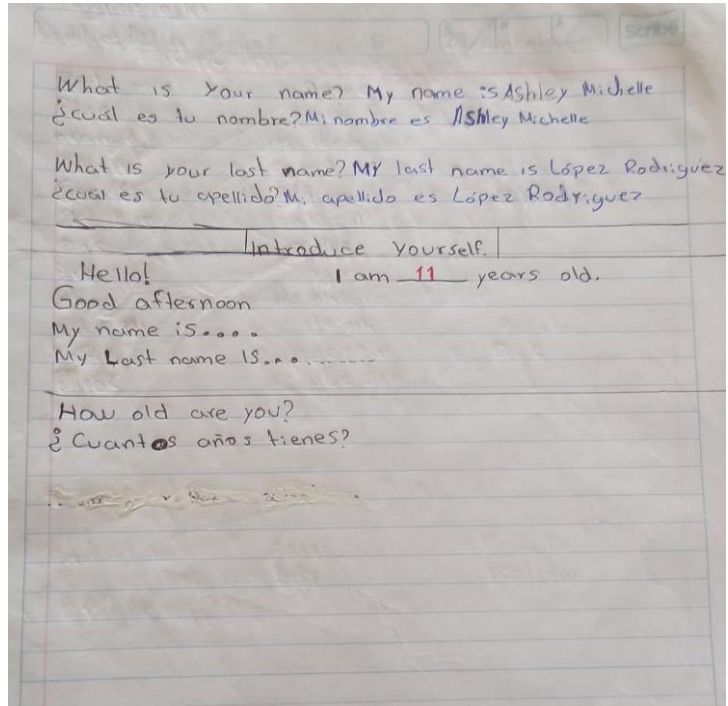 Scribe
What is your name? My name is Ashley Michelle
¿cuál es tu nombre? Mi nombre es Ashley Michelle
What is your last name? My last name is López Rodriguez
¿cuál es tu apellido? Mi apellido es López Rodriguez
Introduce yourself.
Hello! I am 11 years old.
Good afternoon
My name is....
My Last name is............
How old are you?
¿Cuantos años tienes?